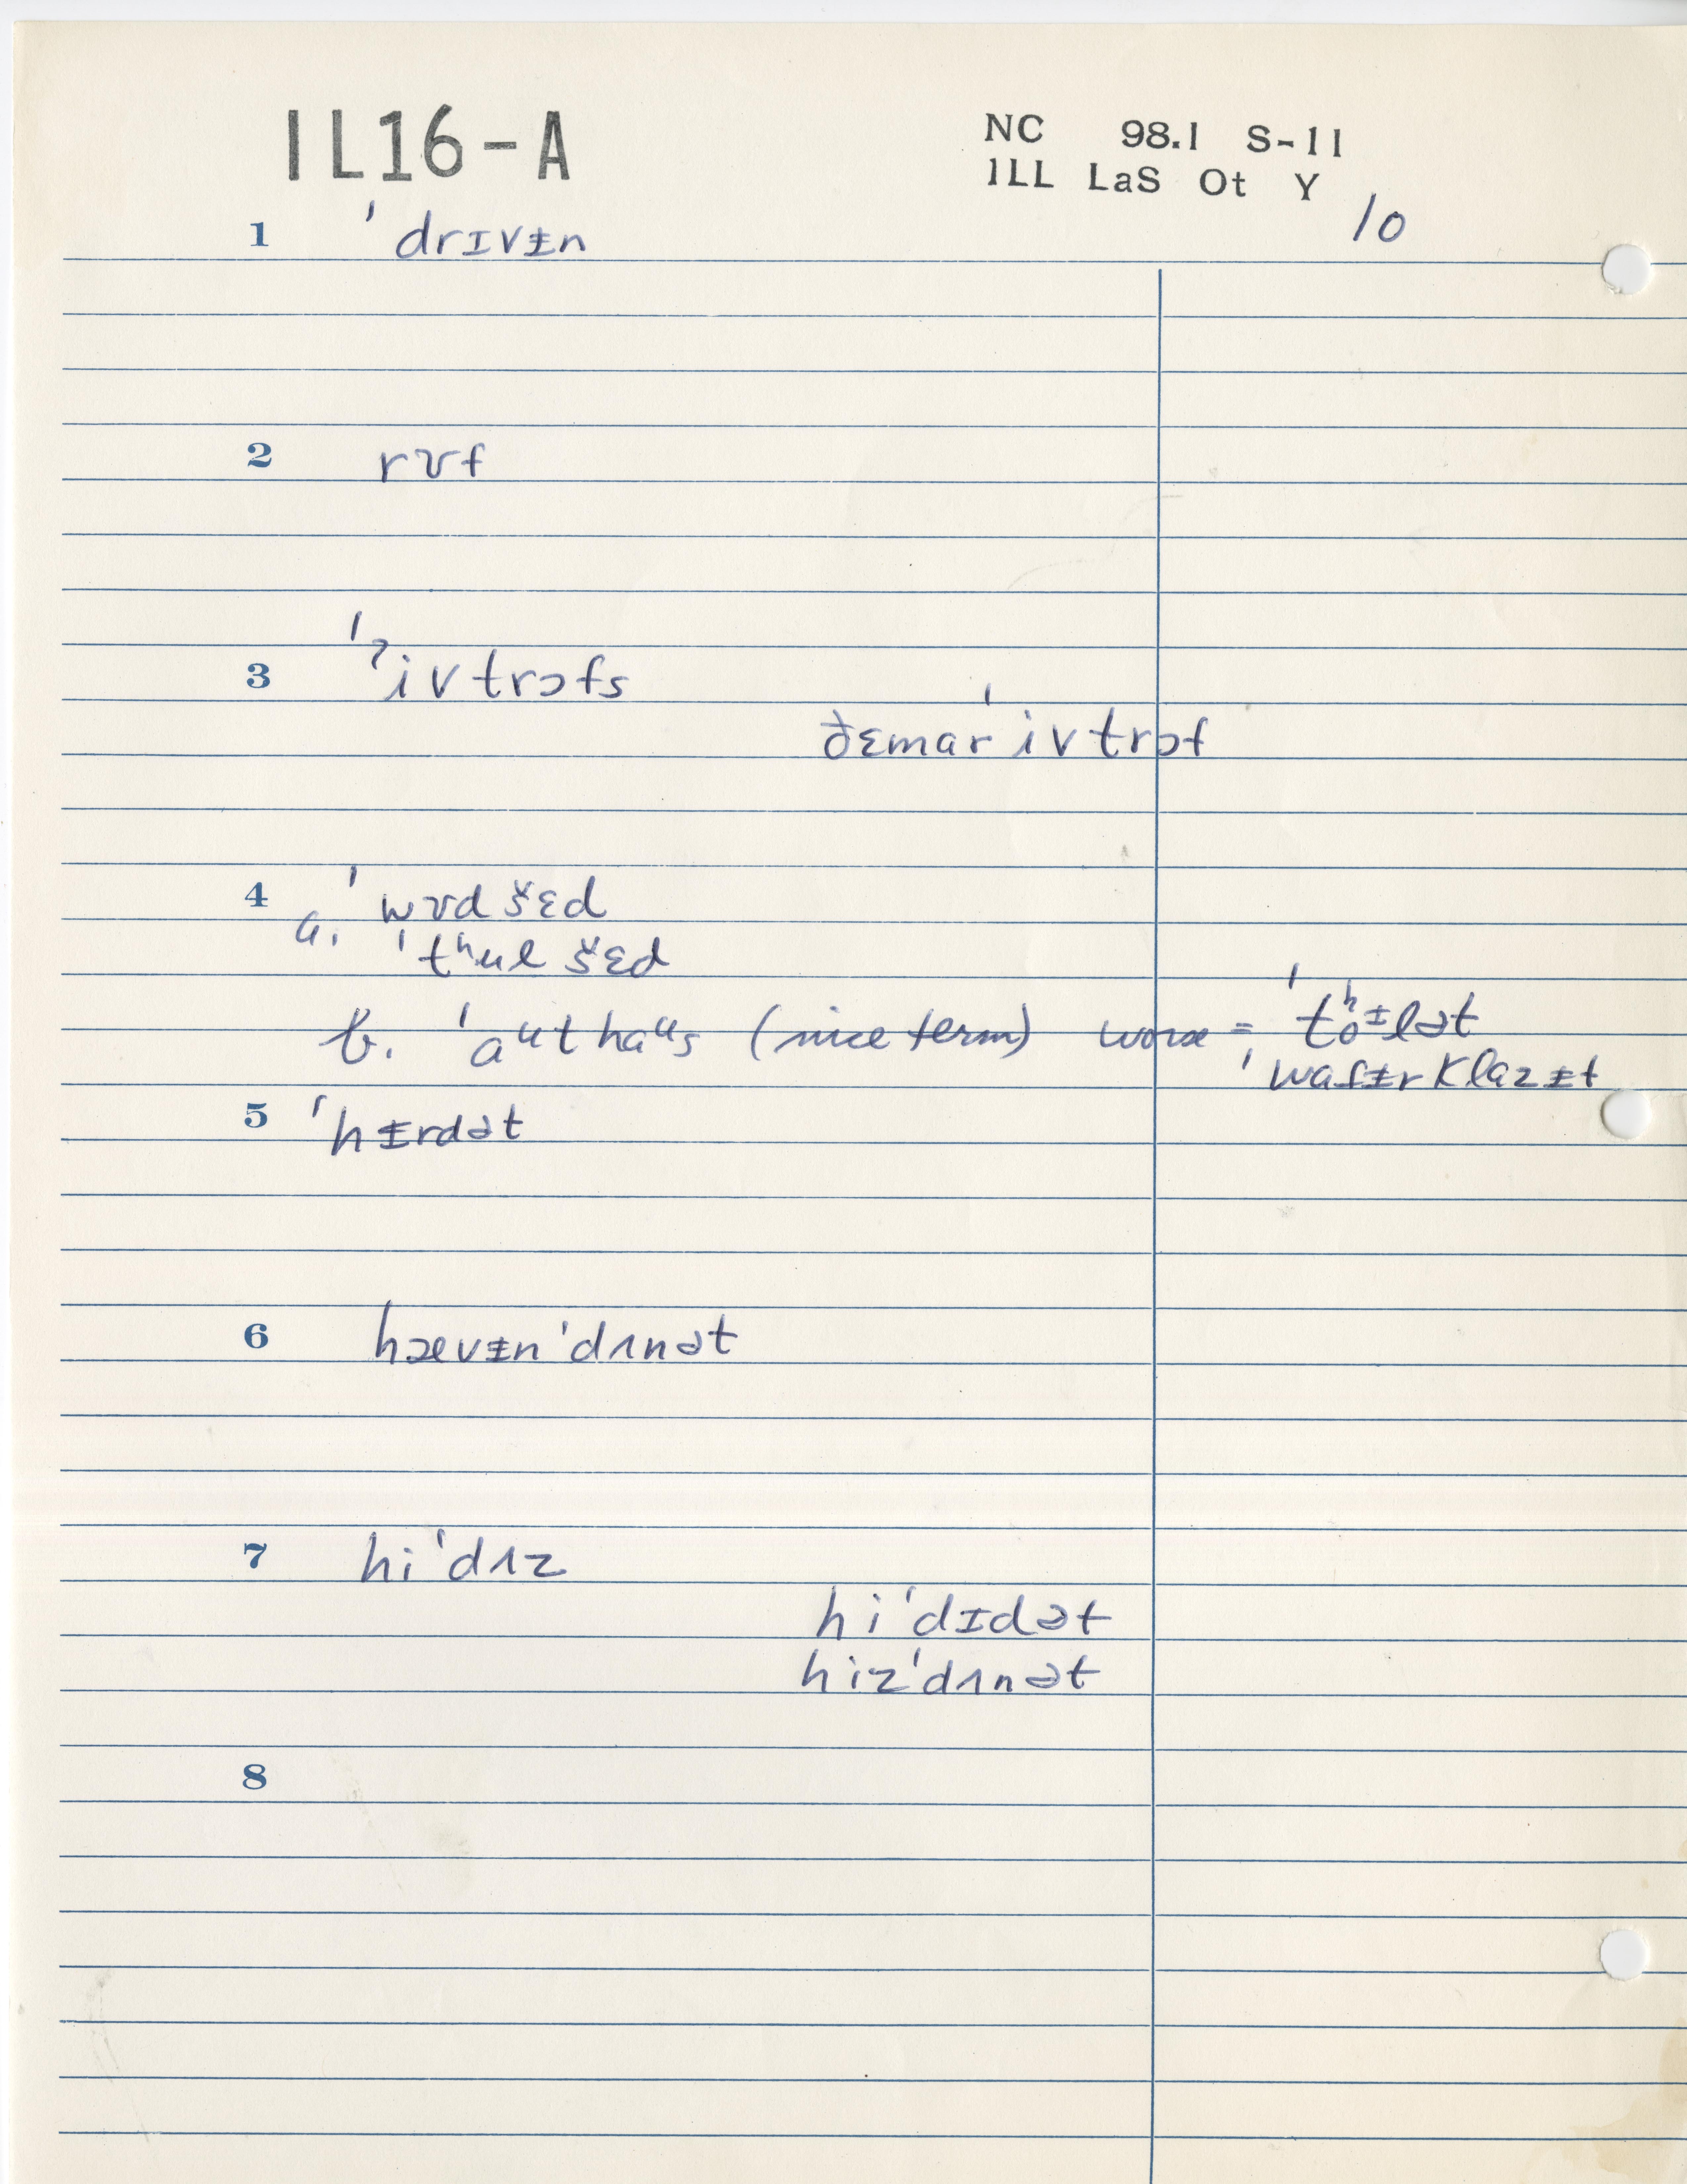 IL16-A
NC 98.1 S-11
ILL LaS Ot Y
10
1 ˈdrɪvᵻn
2 rʊf
3 ˈʔivtrɔfs
ðɛmarˈivtrɔf
4 a. ˈwʊdšɛd
ˈtʰulšɛd
b. ˈaᵘthaᵘs (nice term) worse = ˈtʰoᵻlət
ˈwatᵻrklazᵻt
5 ˈhᵻrdət
6 hævᵻnˈdʌnət
7 hiˈdʌz
hiˈdɪdət
hizˈdʌnət
8